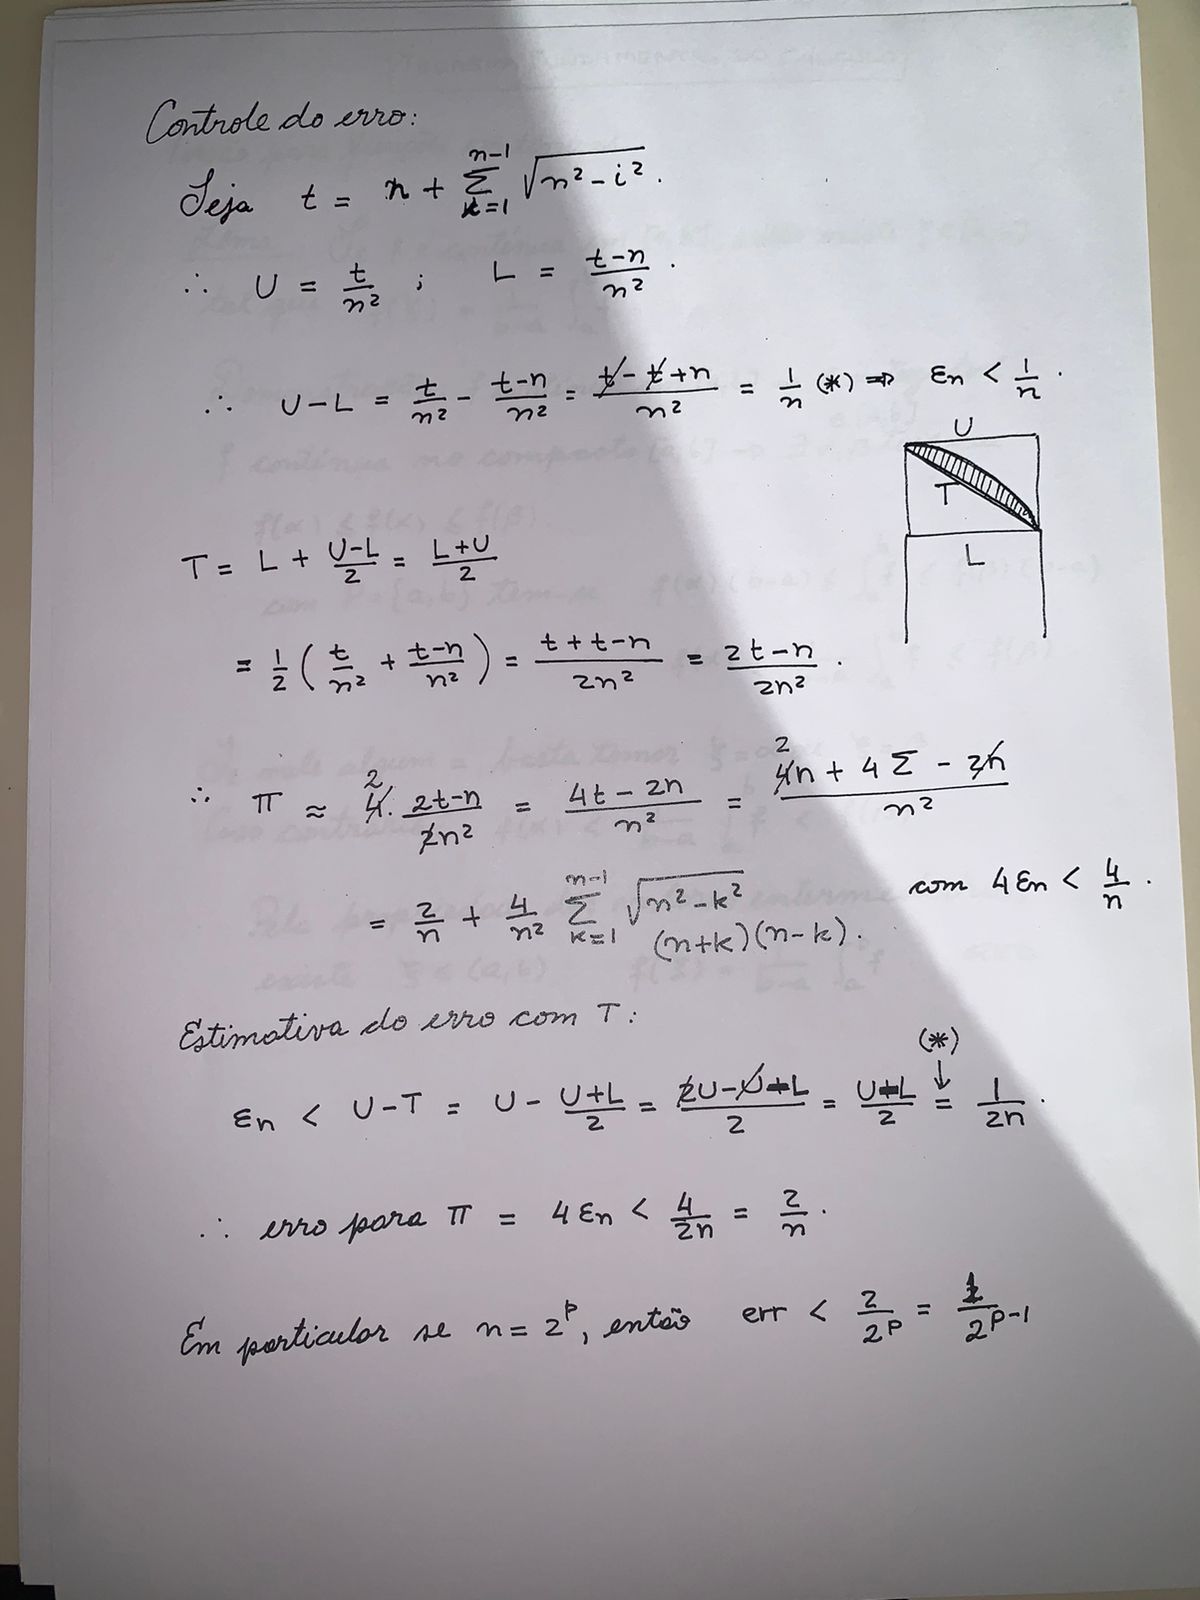 Controle do erro:
Seja t = n + Σ_{k=1}^{n-1} √(n² - i²).
∴ U = t/n² ; L = (t-n)/n².
∴ U-L = t/n² - (t-n)/n² = (t - t + n)/n² = 1/n (*) ⇒ εn < 1/n.
U
T
L
T = L + (U-L)/2 = (L+U)/2
= 1/2 (t/n² + (t-n)/n²) = (t + t - n)/2n² = (2t-n)/2n².
∴ π ≈ 4 2 · (2t-n)/2n² = (4t-2n)/n² = (4n 2 + 4Σ - 2n)/n²
= 2/n + 4/n² Σ_{k=1}^{n-1} √(n² - k²) com 4εn < 4/n.
(n+k)(n-k).
Estimativa do erro com T:
(*)
εn < U-T = U - (U+L)/2 = (2U-U-L)/2 = (U-L)/2 ↓= 1/2n.
∴ erro para π = 4εn < 4/2n = 2/n.
Em particular se n = 2^p, então err < 2/2^p = 1/2^{p-1}